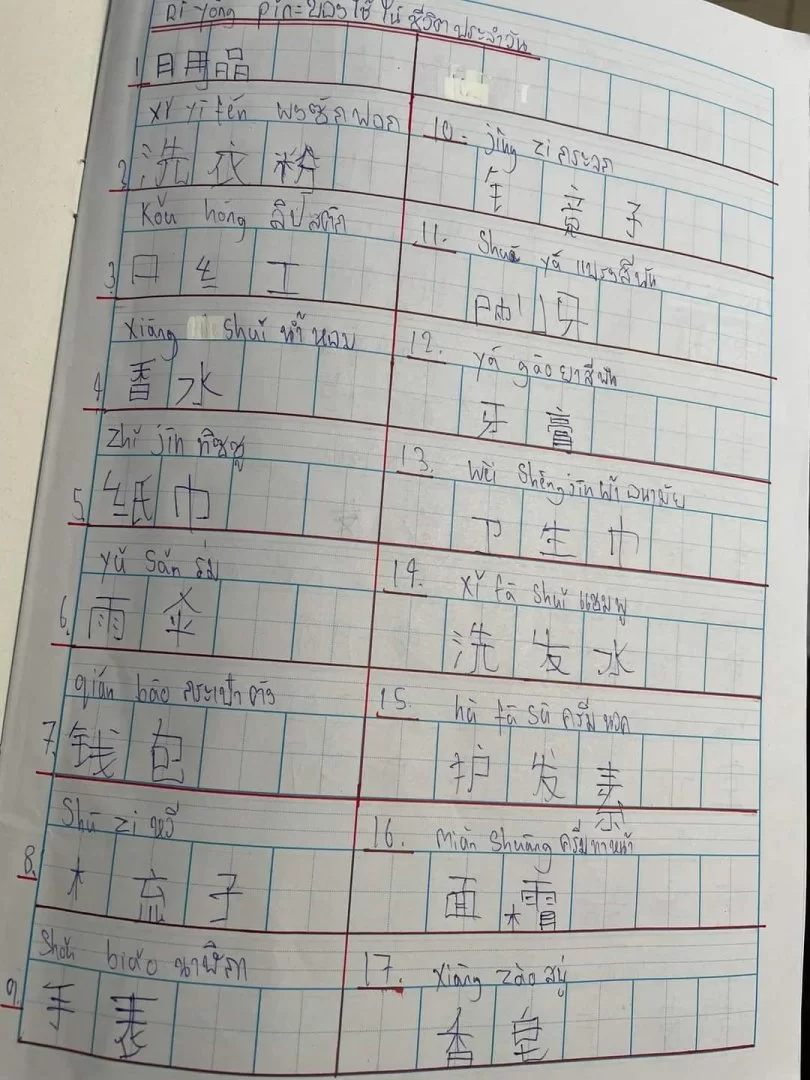 Rì yòng pǐn = ของใช้ในชีวิตประจำวัน
1 日用品
xǐ yī fěn ผงซักฟอก
2 洗衣粉
Kǒu hóng ลิปสติก
3. 口红
xiāng shuǐ น้ำหอม
4 香水
zhǐ jīn ทิชชู
5. 纸巾
yǔ sǎn ร่ม
6. 雨伞
qián bāo กระเป๋าตัง
7. 钱包
Shū zi หวี
8. 梳子
Shǒu biǎo นาฬิกา
9. 手表
10. jìng zi กระจก
镜子
11. Shuā yá แปรงสีฟัน
刷牙
12. yá gāo ยาสีฟัน
牙膏
13. wèi Shēng jīn ผ้าอนามัย
卫生巾
14. xǐ fà shuǐ แชมพู
洗发水
15. hù fà sù ครีมนวด
护发素
16. miàn Shuāng ครีมทาหน้า
面霜
17. xiāng zào สบู่
香皂